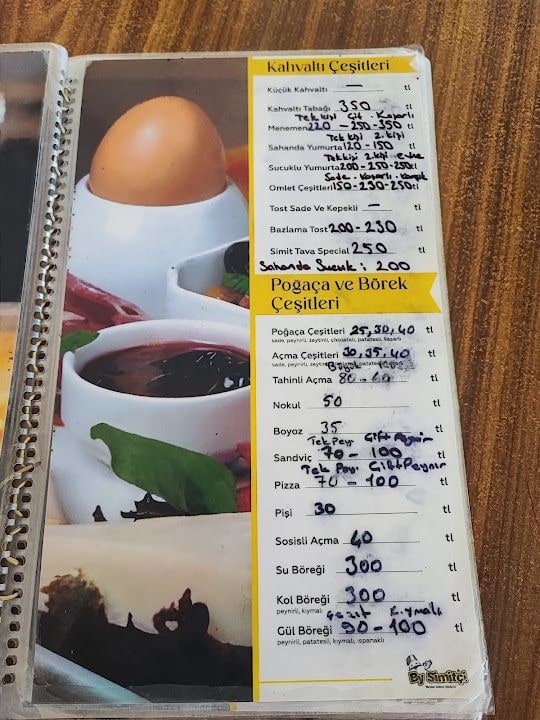 Kahvaltı Çeşitleri
Küçük Kahvaltı — tl
Kahvaltı Tabağı 350 tl
Tek kişi Çift . Kaşarlı
Menemen 220 - 250 - 350 tl
Tek kişi 2. kişi
Sahanda Yumurta 120 - 150 tl
Tek kişi 2. kişi
Sucuklu Yumurta 200 - 250 - 250 tl
Sade . Kaşarlı . Karışık
Omlet Çeşitleri 150 - 230 - 250 tl
Tost Sade Ve Kepekli — tl
Bazlama Tost 200 - 230 tl
Simit Tava Special 250 tl
Sahanda Sucuk : 200
Poğaça ve Börek
Çeşitleri
Poğaça Çeşitleri 25, 30, 40 tl
sade, peynirli, zeytinli, çikolatalı, patatesli, kaşarlı
Açma Çeşitleri 30, 35, 40 tl
sade, peynirli,
Büyük
Tahinli Açma 80 - 60 tl
Nokul 50 tl
Boyoz 35 tl
Tek Pey. Çift Peynir
Sandviç 70 - 100 tl
Tek Pey. Çift Peynir
Pizza 70 - 100 tl
Pişi 30 tl
Sosisli Açma 40 tl
Su Böreği 300 tl
Kol Böreği 300 tl
peynirli, kıymalı
Çeşit Kıymalı
Gül Böreği 90 - 100 tl
peynirli, patatesli, kıymalı, ıspanaklı
By Simitçi